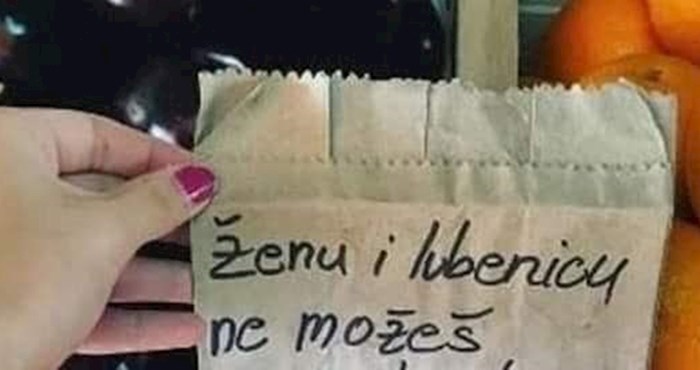 Ženu i lubenicu
ne možeš